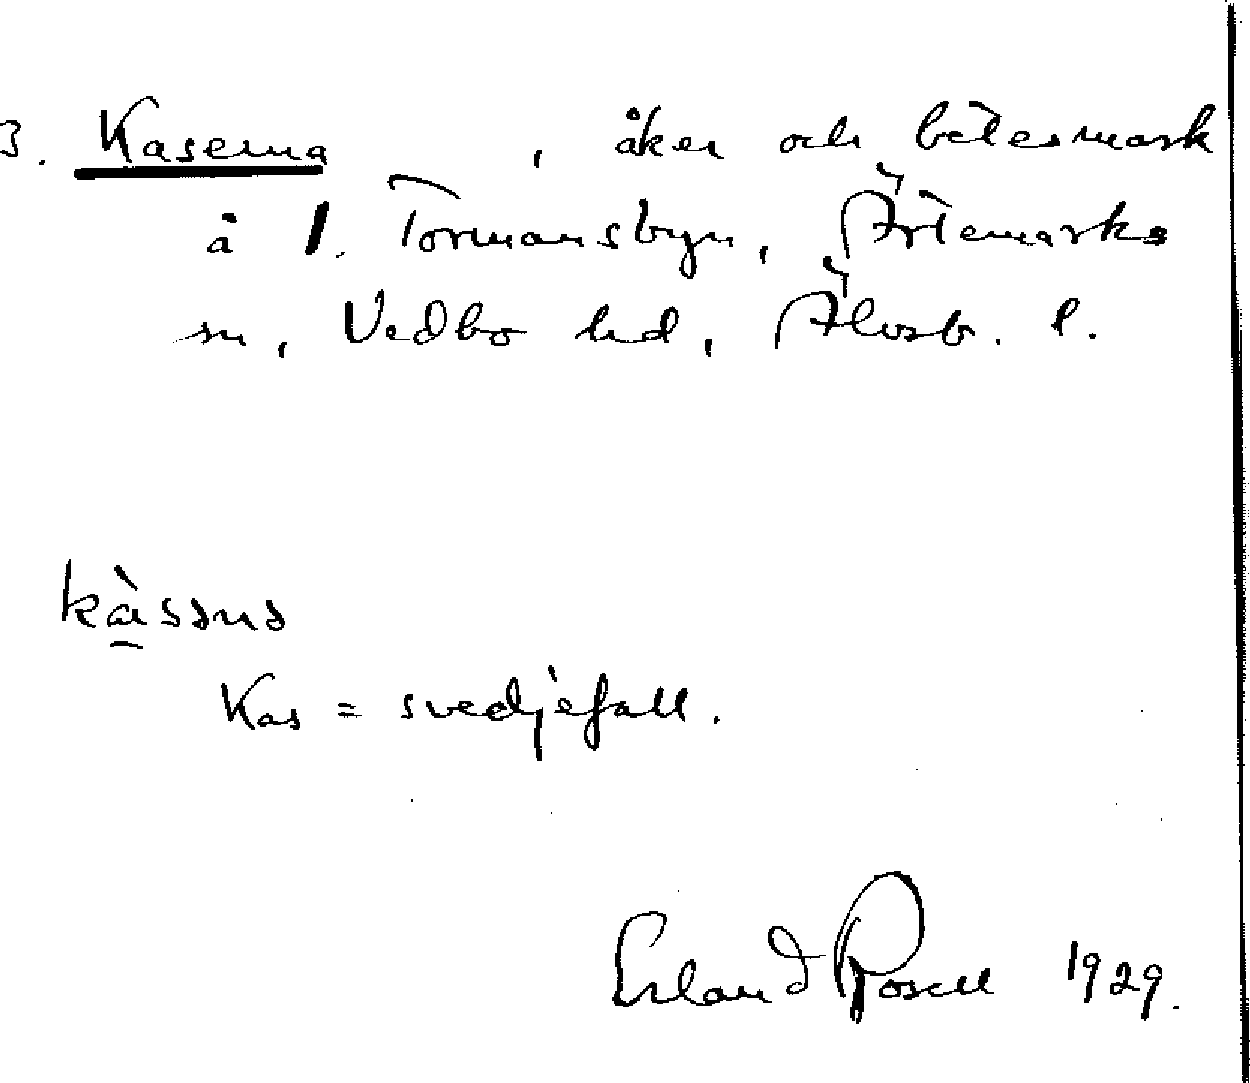 3. Kaserna , åker och betesmark
å 1. Tormansbyn, Ärtemarks
sn, Vedbo hd, Älvsb. l.
Kas = svedjefall.
Erland Rosell 1929.